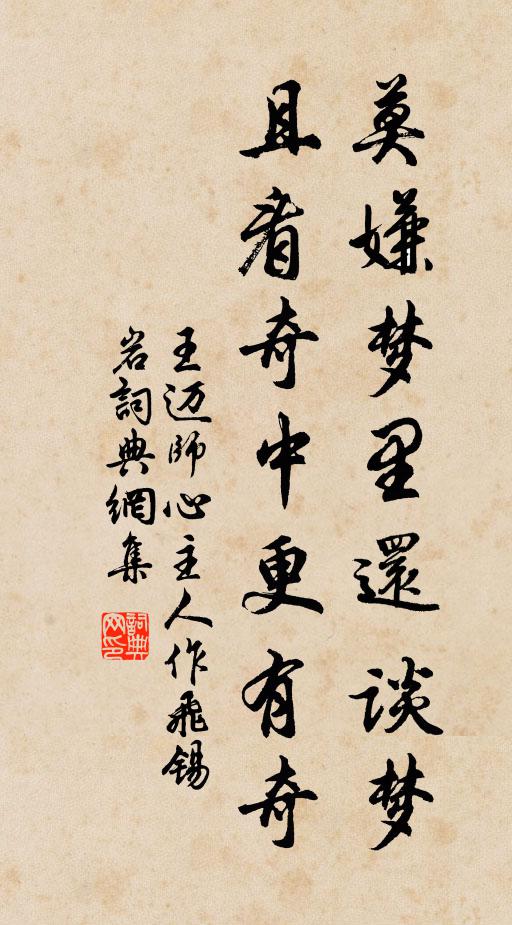 莫嫌梦里還谈梦
且看奇中更有奇
王迈師心主人作飛錫
岩詞典網集
詞典
网印